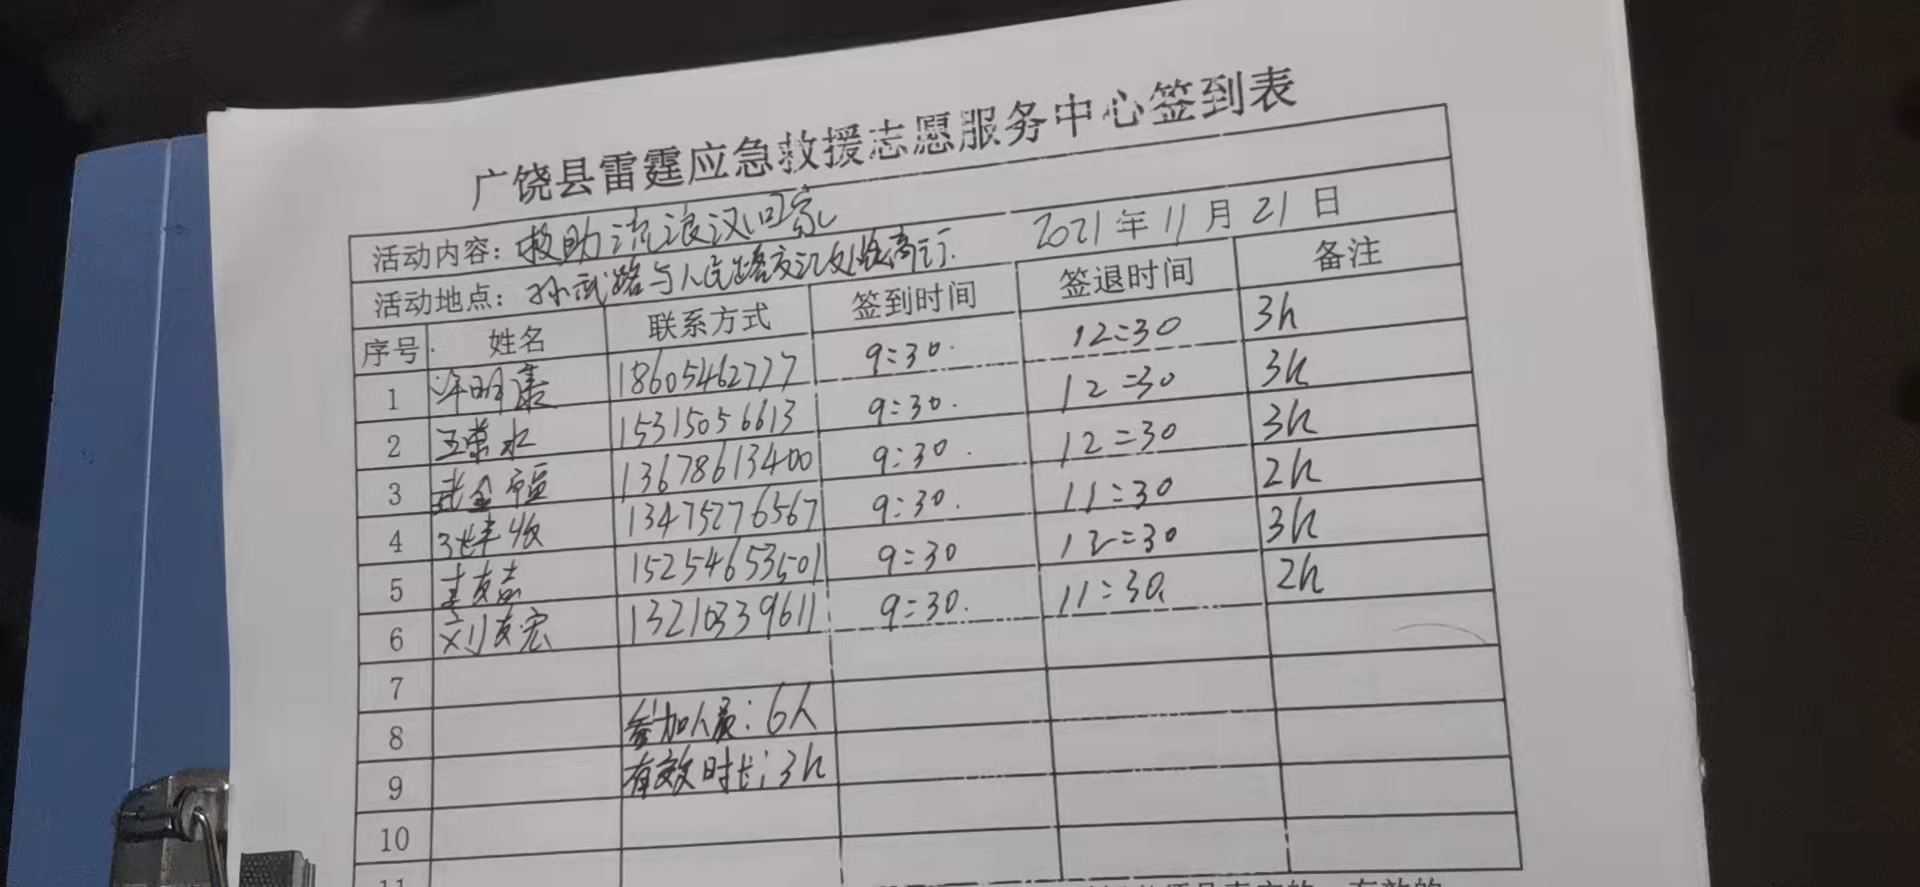 广饶县雷霆应急救援志愿服务中心签到表
活动内容：救助流浪汉回家
活动地点：孙武路与人民路交汇处 2021年11月21日
序号 姓名 联系方式 签到时间 签退时间 备注
1 许明康 18605462777 9:30. 12:30 3h
2 王荣水 15315056613 9:30. 12:30 3h
3 武金福 13678613400 9:30. 12:30 3h
4 张丰收 13475276567 9:30. 11:30 2h
5 友志 15254653501 9:30 12:30 3h
6 刘友宏 13210339611 9:30. 11:30. 2h
7
8 参加人员：6人
9 有效时长：3h
10
11